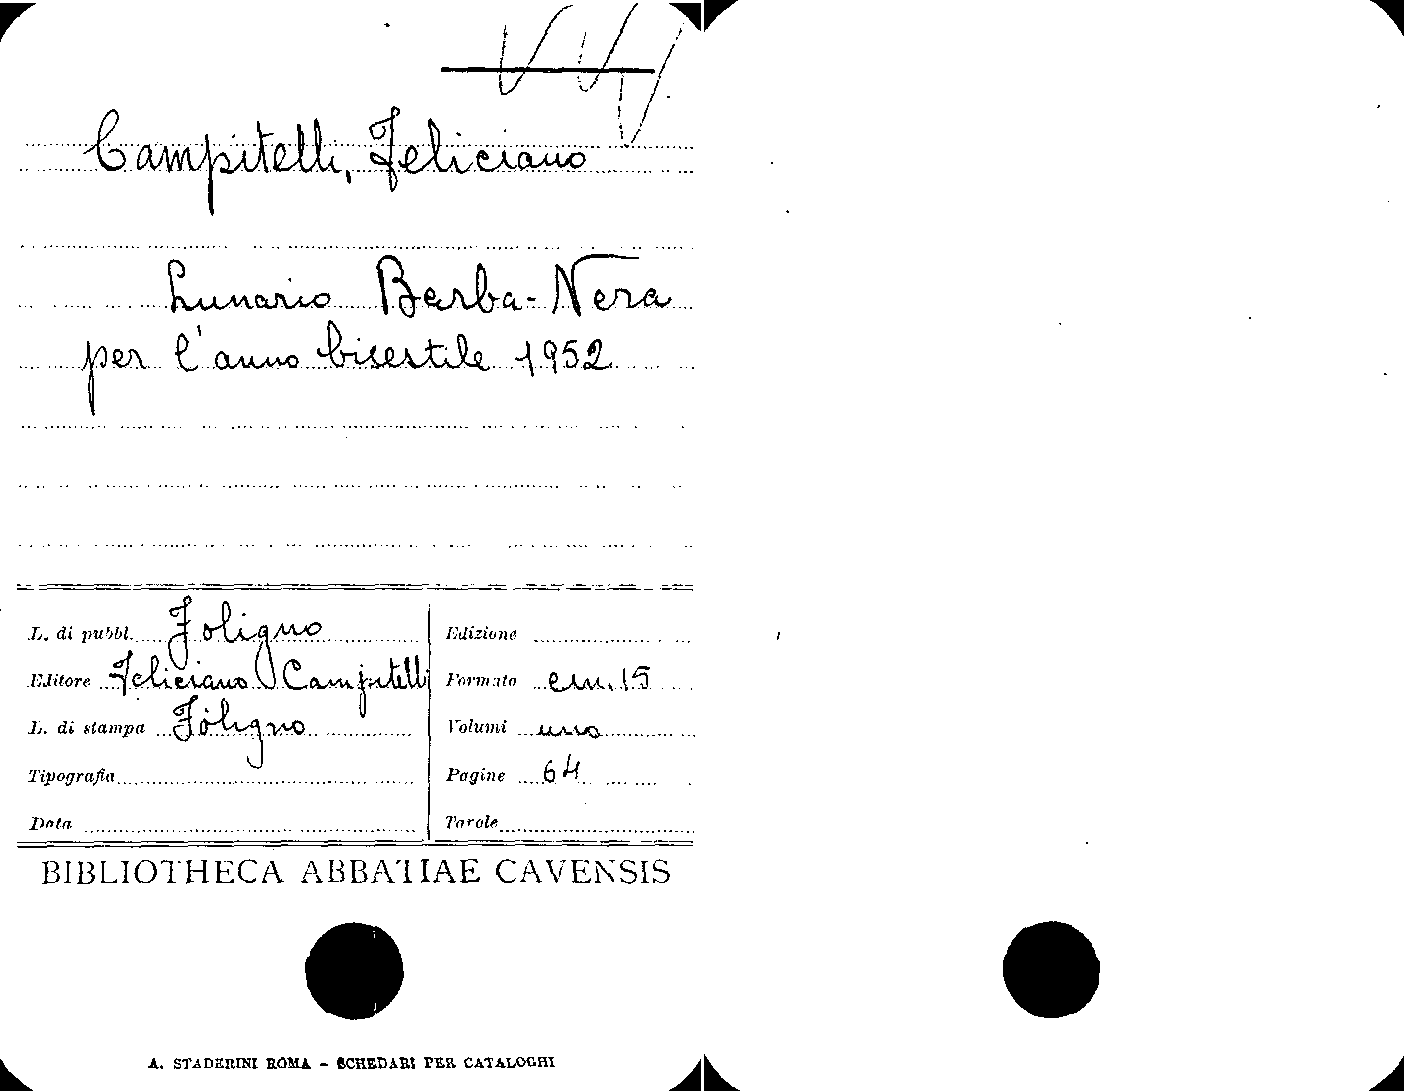 Campitelli, Feliciano
Lunario Barba-Nera
per l'anno bisestile 1952
L. di pubbl. Foligno
Editore Feliciano Campitelli
L. di stampa Foligno
Tipografia
Data
Edizione
Formato cm. 15
Volumi uno
Pagine 64
Tavole
BIBLIOTHECA ABBATIAE CAVENSIS
A. STADERINI ROMA - SCHEDARI PER CATALOGHI